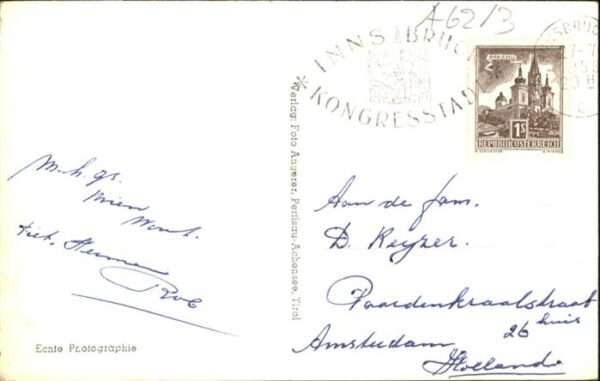 A62/3
INNSBRUCK
KONGRESSTADT
1S
REPUBLIK ÖSTERREICH
Verlag: Foto Angerer, Pertisau-Achensee, Tirol
M.h.gr.
Wien
Aan de fam.
D. Keyzer.
Paardenkraalstraat
26 huis
Amsterdam
Hollande
Echte Photographie